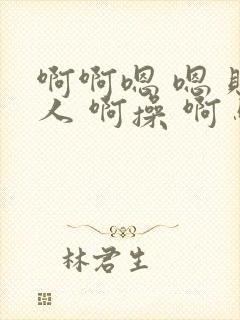 啊啊嗯 嗯
人 啊操 啊
林君生